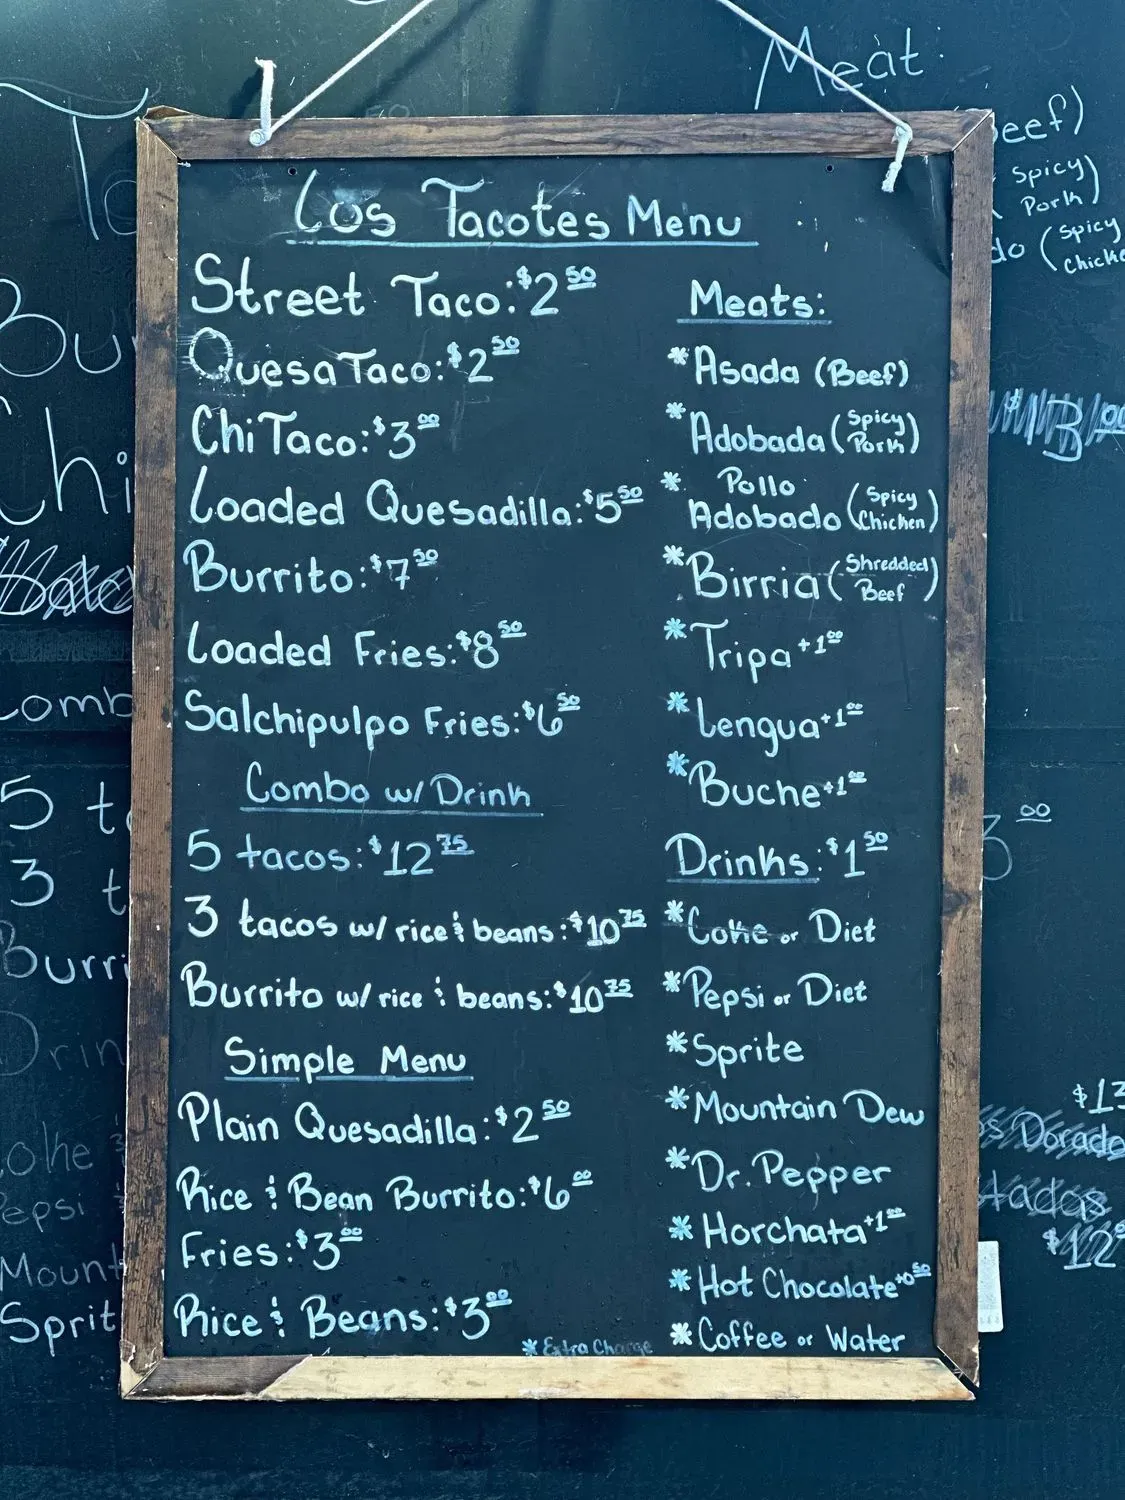 Los Tacotes Menu
Street Taco: $2 50
Quesa Taco: $2 50
Chi Taco: $3 00
Loaded Quesadilla: $5 50
Burrito: $7 50
Loaded Fries: $8 50
Salchipulpo Fries: $6 50
Combo w/ Drink
5 tacos: $12 75
3 tacos w/ rice & beans: $10 75
Burrito w/ rice & beans: $10 75
Simple Menu
Plain Quesadilla: $2 50
Rice & Bean Burrito: $6 00
Fries: $3 00
Rice & Beans: $3 00
* Extra Charge
Meats:
*Asada (Beef)
*Adobada (Spicy Pork)
* Pollo
Adobado (Spicy Chicken)
*Birria (Shredded Beef)
*Tripa +1 00
*Lengua +1 00
*Buche +1 00
Drinks: $1 50
*Coke or Diet
*Pepsi or Diet
*Sprite
*Mountain Dew
*Dr. Pepper
*Horchata +1 00
*Hot Chocolate +0 50
*Coffee or Water
Meat:
eef)
Spicy
Pork)
do (Spicy
Chicke
$13 00
3 00
$13
os Dorado
tados
$12
Ta
Bur
Chi
Comb
5 t
3 t
Burri
Drin
Coke
Pepsi
Mount
Sprit